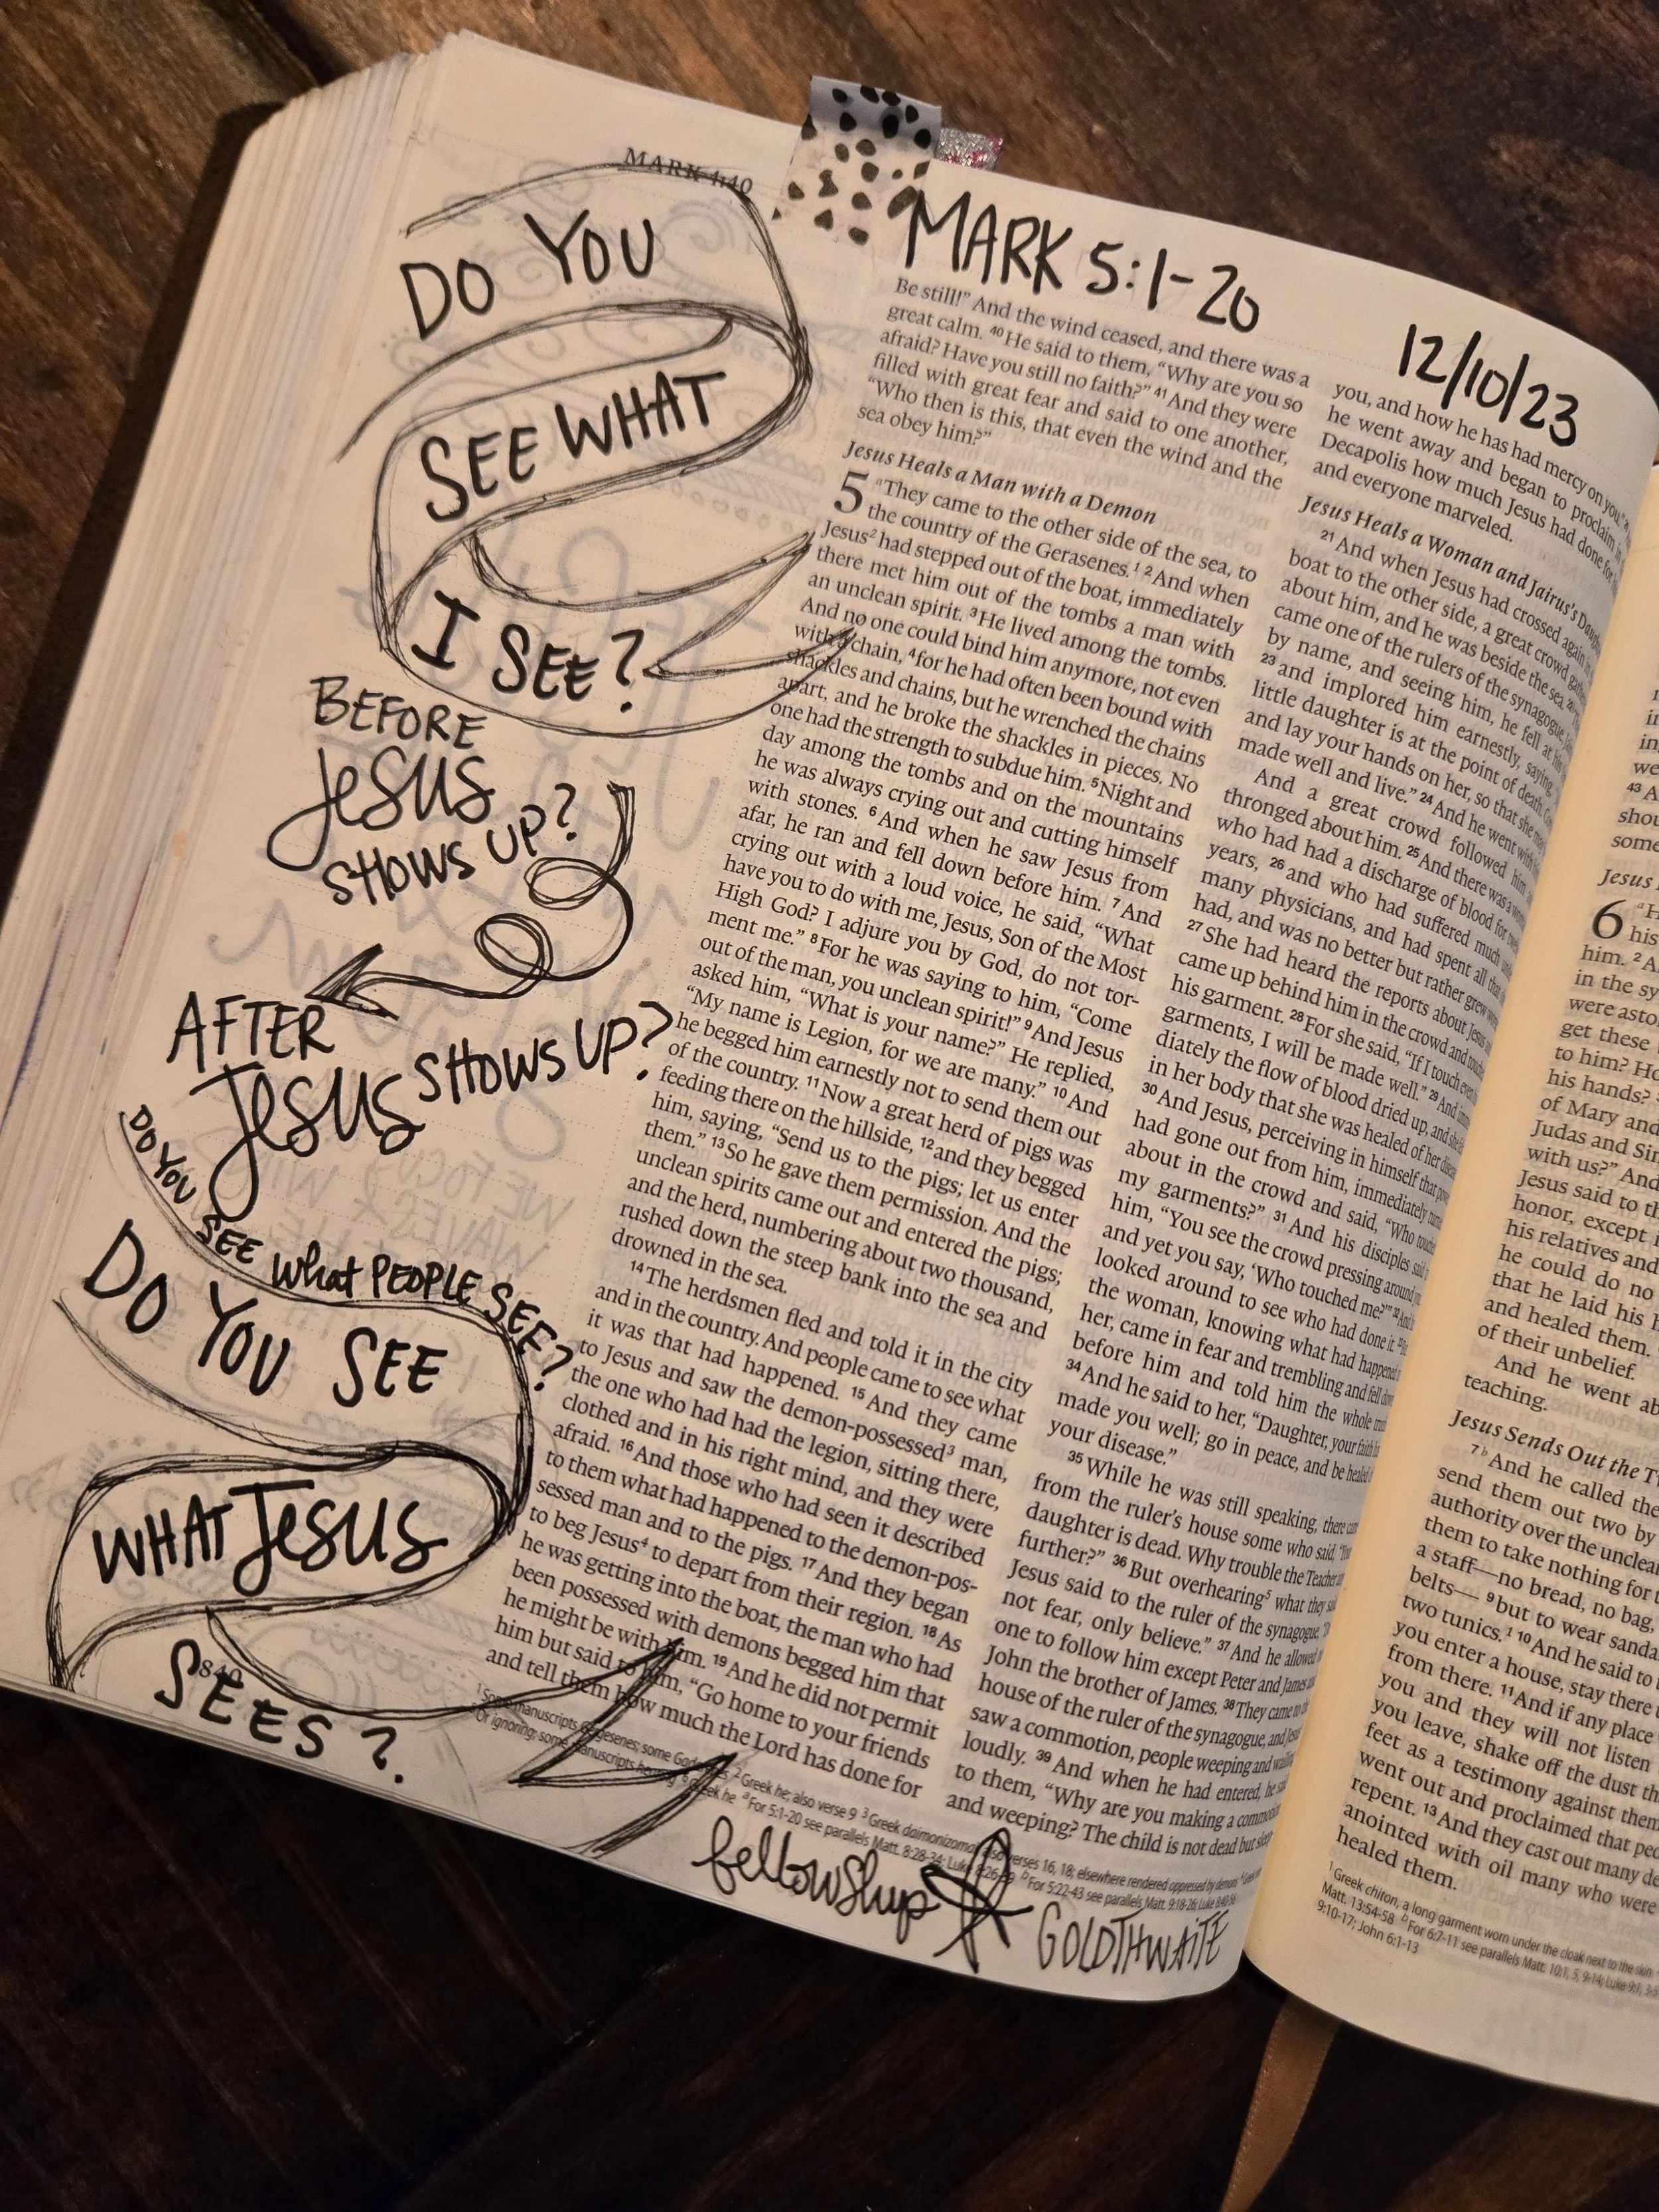 MARK 4:40
DO YOU
SEE WHAT
I SEE?
BEFORE
JESUS
SHOWS UP?
AFTER
JESUS SHOWS UP?
DO YOU SEE what PEOPLE SEE?
DO YOU SEE
WHAT JESUS
SEES?
840
MARK 5:1-20
12/10/23
Be still!” And the wind ceased, and there was a
great calm. 40 He said to them, “Why are you so
afraid? Have you still no faith?” 41 And they were
filled with great fear and said to one another,
“Who then is this, that even the wind and the
sea obey him?”
Jesus Heals a Man with a Demon
5 a They came to the other side of the sea, to
the country of the Gerasenes.1 2 And when
Jesus2 had stepped out of the boat, immediately
there met him out of the tombs a man with
an unclean spirit. 3 He lived among the tombs.
And no one could bind him anymore, not even
with a chain, 4 for he had often been bound with
shackles and chains, but he wrenched the chains
apart, and he broke the shackles in pieces. No
one had the strength to subdue him. 5 Night and
day among the tombs and on the mountains
he was always crying out and cutting himself
with stones. 6 And when he saw Jesus from
afar, he ran and fell down before him. 7 And
crying out with a loud voice, he said, “What
have you to do with me, Jesus, Son of the Most
High God? I adjure you by God, do not tor-
ment me.” 8 For he was saying to him, “Come
out of the man, you unclean spirit!” 9 And Jesus
asked him, “What is your name?” He replied,
“My name is Legion, for we are many.” 10 And
he begged him earnestly not to send them out
of the country. 11 Now a great herd of pigs was
feeding there on the hillside, 12 and they begged
him, saying, “Send us to the pigs; let us enter
them.” 13 So he gave them permission. And the
unclean spirits came out and entered the pigs;
and the herd, numbering about two thousand,
rushed down the steep bank into the sea and
drowned in the sea.
14 The herdsmen fled and told it in the city
and in the country. And people came to see what
it was that had happened. 15 And they came
to Jesus and saw the demon-possessed3 man,
the one who had had the legion, sitting there,
clothed and in his right mind, and they were
afraid. 16 And those who had seen it described
to them what had happened to the demon-pos-
sessed man and to the pigs. 17 And they began
to beg Jesus4 to depart from their region. 18 As
he was getting into the boat, the man who had
been possessed with demons begged him that
he might be with him. 19 And he did not permit
him but said to him, “Go home to your friends
and tell them how much the Lord has done for
you, and how he has had mercy on you.”
he went away and began to proclaim in
Decapolis how much Jesus had done for
and everyone marveled.
Jesus Heals a Woman and Jairus's
21 And when Jesus had crossed again in
boat to the other side, a great crowd
about him, and he was beside the sea.
came one of the rulers of the synagogue,
by name, and seeing him, he fell at his
23 and implored him earnestly, saying,
little daughter is at the point of death.
and lay your hands on her, so that she
made well and live.” 24 And he went with
And a great crowd followed him
thronged about him. 25 And there was a
who had had a discharge of blood for
years, 26 and who had suffered much
many physicians, and had spent all that
had, and was no better but rather grew
27 She had heard the reports about Jesus
came up behind him in the crowd and
his garment. 28 For she said, “If I touch
garments, I will be made well.” 29 And
diately the flow of blood dried up, and
in her body that she was healed of her
30 And Jesus, perceiving in himself that
had gone out from him, immediately
about in the crowd and said, “Who
my garments?” 31 And his disciples said
him, “You see the crowd pressing around
and yet you say, ‘Who touched me?’”
looked around to see who had done it.
the woman, knowing what had happened
her, came in fear and trembling and fell down
before him and told him the whole
34 And he said to her, “Daughter, your faith
made you well; go in peace, and be healed
your disease.”
35 While he was still speaking, there
from the ruler's house some who said,
daughter is dead. Why trouble the Teacher
further?” 36 But overhearing5 what they
Jesus said to the ruler of the synagogue,
not fear, only believe.” 37 And he allowed
one to follow him except Peter and James
John the brother of James. 38 They came to
house of the ruler of the synagogue, and
saw a commotion, people weeping and
loudly. 39 And when he had entered, he
to them, “Why are you making a
and weeping? The child is not dead but
1 Some manuscripts some
Or ignoring; some manuscripts
2 Greek he; also verse 9 3 Greek daimonizomai also verses 16, 18; elsewhere rendered oppressed by demons
a For 5:1-20 see parallels Matt. 8:28-34; Luke b For 5:22-43 see parallels Matt. 9:18-26; Luke
fellowship
GOLDTHWAITE
43
shou
some
Jesus
6
his
him. 2
in the sy
were asto
get these
to him? Ho
his hands?
of Mary and
Judas and Sim
with us?” And
Jesus said to th
honor, except
his relatives and
he could do no
that he laid his h
and healed them.
of their unbelief.
And he went ab
teaching.
Jesus Sends Out the
7 b And he called the
send them out two by
authority over the unclean
them to take nothing for
a staff—no bread, no bag,
belts— 9 but to wear sanda
two tunics.1 10 And he said to
you enter a house, stay there
from there. 11 And if any place
you and they will not listen
you leave, shake off the dust
feet as a testimony against them
went out and proclaimed that
repent. 13 And they cast out many
anointed with oil many who were
healed them.
1 Greek chiton, a long garment worn under the cloak next to the skin
Matt. 13:54-58 b For 6:7-11 see parallels Matt. 10:1, 5, 9-14; Luke 9:1,
9:10-17; John 6:1-13